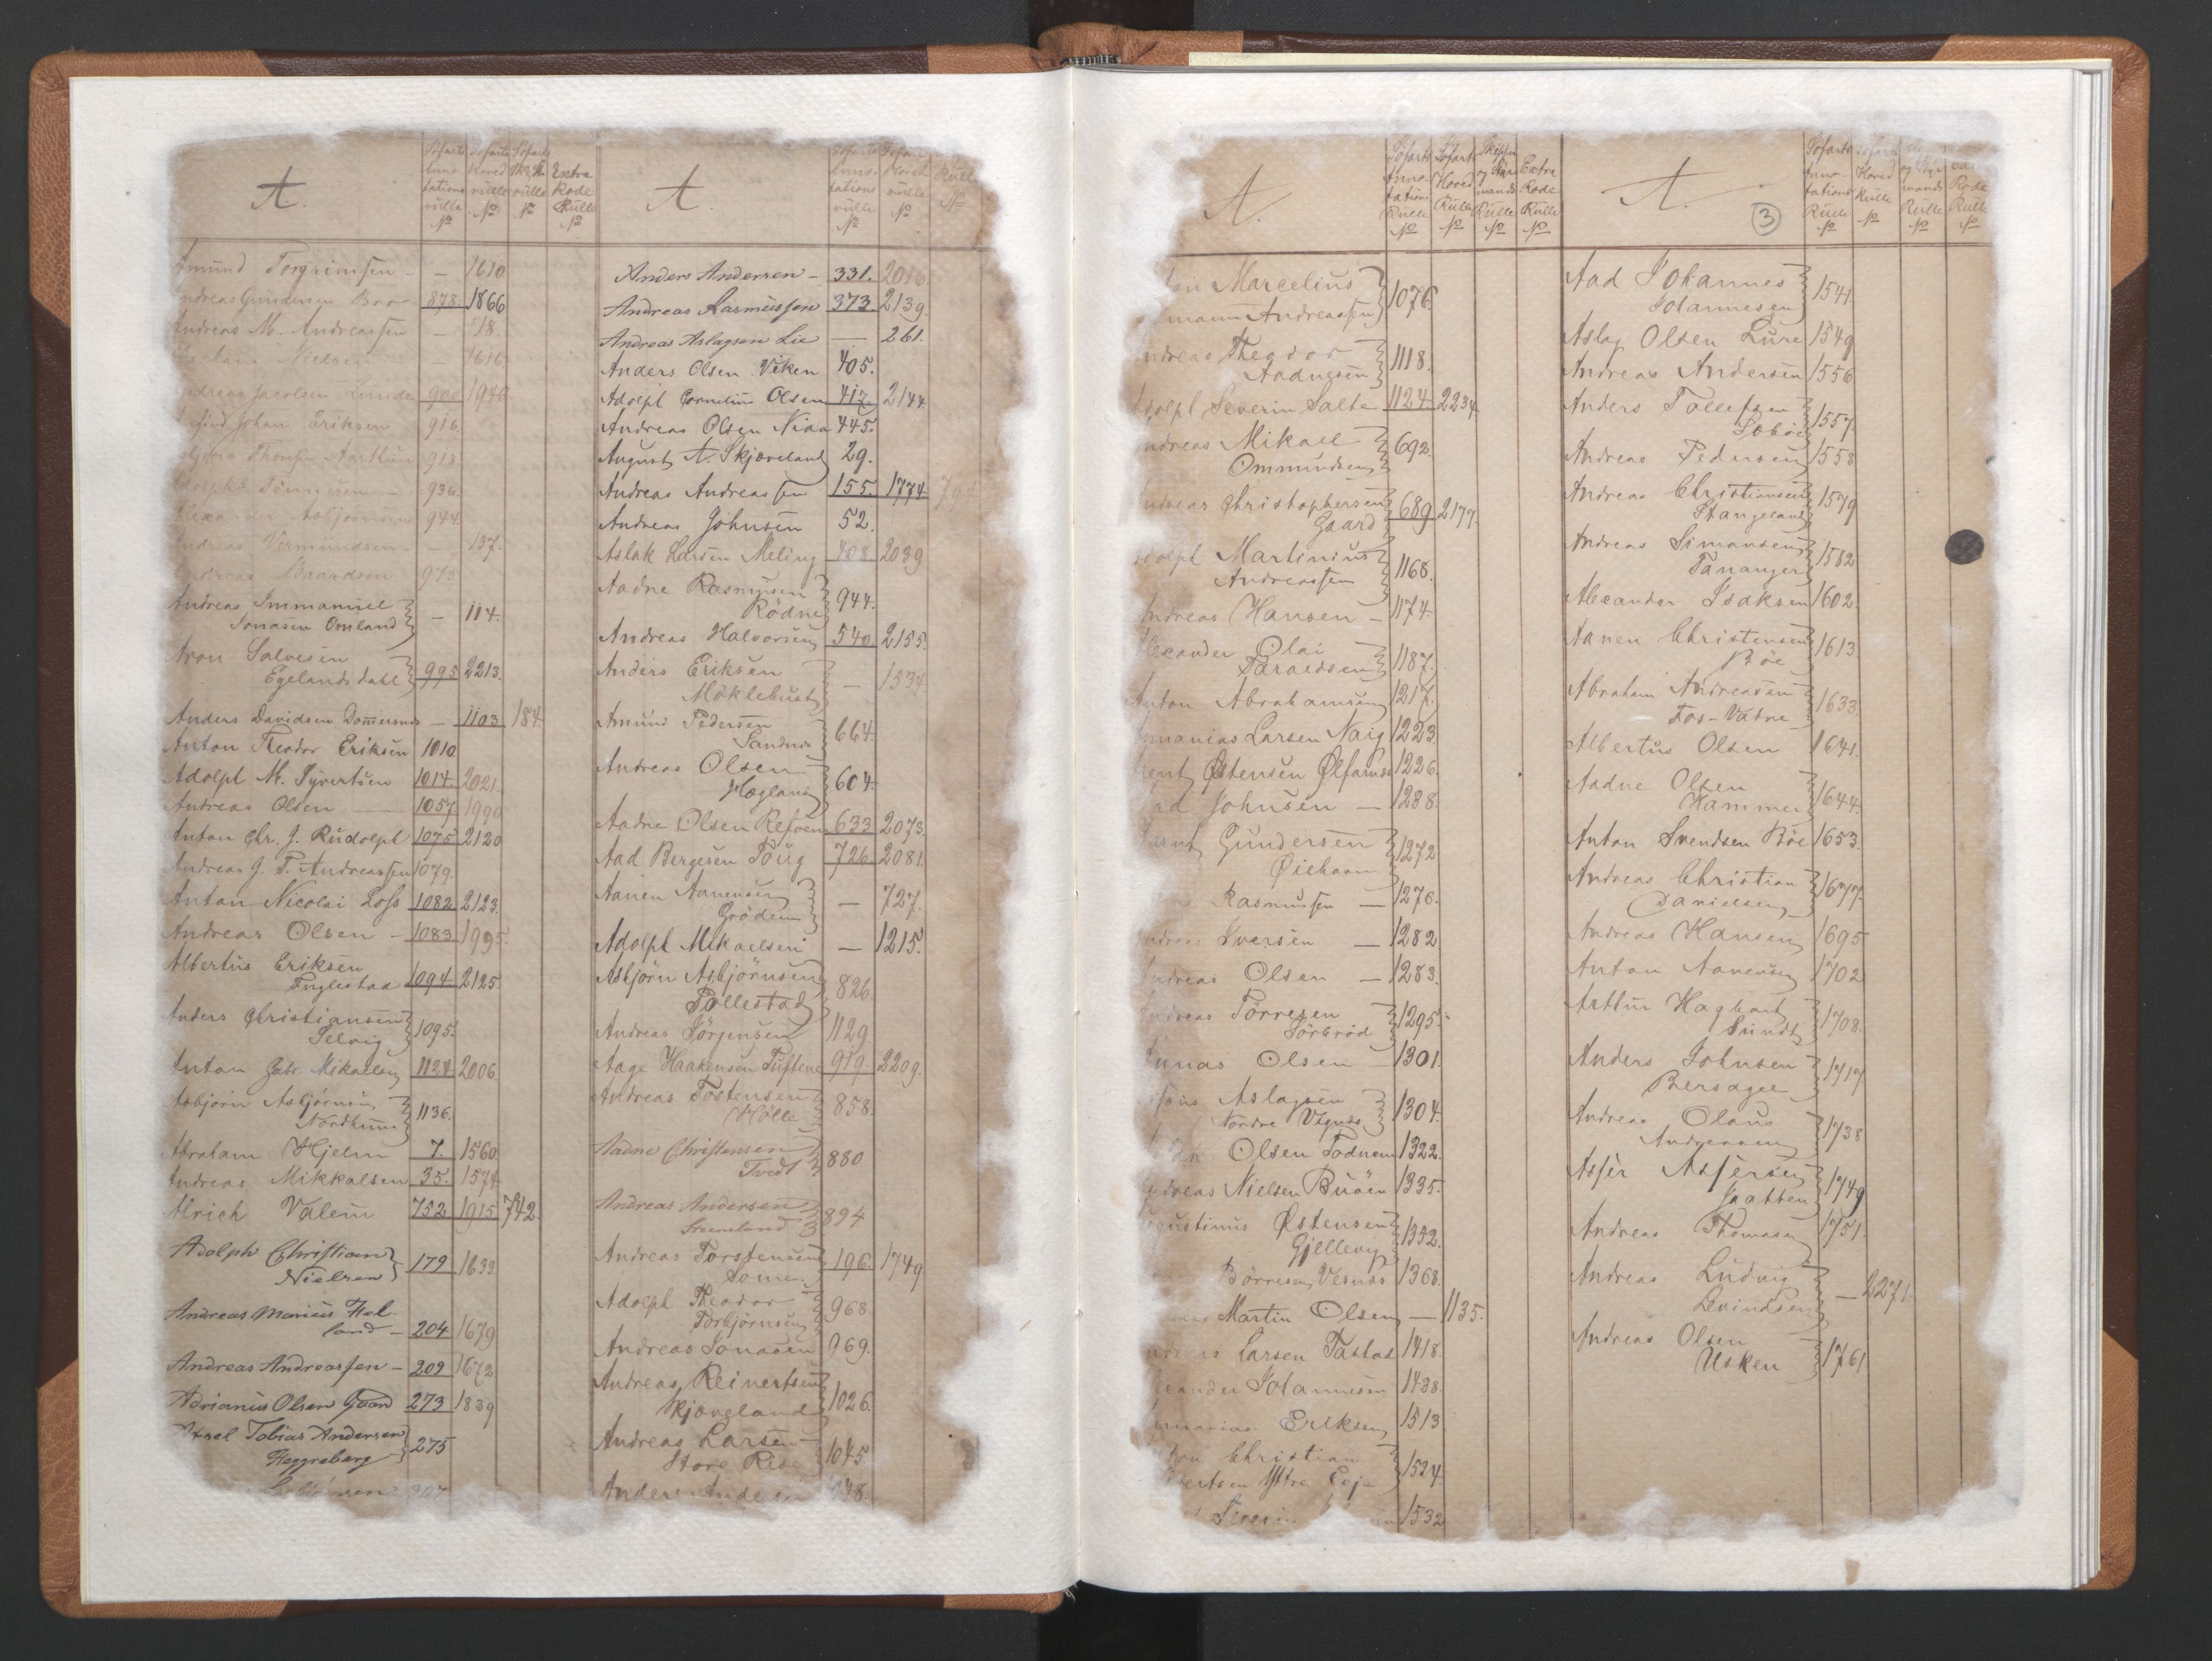 A.
Søfarts Annotations rulle No
Søfarts Hoved rulle No
Extra Rode Rulle No
Amund Torgrimsen - — 1610
Andreas Gundersen 878 1866
Andreas M. Andreassen — 18.
Nielsen 1616
Andreas Jacobsen Linde 900 1946
Johan Eriksen 916.
918.
936.
944.
Andreas Vermundsen - — 137.
Andreas Baardsen 973
Andreas Immanuel
Jonasen Omland — 114.
Aron Salvesen
Egelandsdahl 995 2213.
Anders Davidsen Dommersnes — 1103 184
Anton Theodor Eriksen 1010
Adolph M. Syvertsen 1014 2021.
Andreas Olsen — 1057 1990
Anton Chr. J. Rudolph 1075 2120
Andreas J. T. Andreassen 1079.
Anton Nicolai Loss 1082 2123.
Andreas Olsen - 1083 1995.
Albertus Eriksen
Fuglestad 1094 2125
Anders Christiansen
Selvig 1095.
Anton Gabr. Mikalsen 1124 2006.
Asbjørn Asbjørnsen
Nordhuus 1136.
Abraham Hjelm 7. 1560
Andreas Mikkalsen 35. 1574
Alrich Valeur 752 1915 742.
Adolph Christian
Nielsen 179 1633
Andreas Marius Hel-
land - 204 1679
Andreas Andreassen - 209 1672
Adrianus Olsen Gaard 273 1839
Axel Tobias Andersen
Heggreberg 275
307
A.
Søfarts Annotations rulle No
Hoved rulle No
Rulle No
Anders Andersen - 331. 2016
Andreas Rasmussen 373 2139.
Andreas Aslagsen Lie — 261.
Anders Olsen Viken 405.
Adolph Cornelius Olsen 417. 2144.
Andreas Olsen Niaa 445.
August A. Skjæveland 29.
Andreas Andreassen 155. 1774 794
Andreas Johnsen 52.
Aslak Larsen Meling 408 2039
Aadne Rasmussen
Rødne 944.
Andreas Halvorsen 540 2155.
Anders Eriksen
Møklebust — 1534.
Amund Pedersen
Sandnes 664.
Andreas Olsen
Hægland 604.
Aadne Olsen Refsøen 633 2073.
Aad Bergesen Toug 726 2081.
Aanen Aanensen
Grødem — 727.
Adolph Mikaelsen — 1215.
Asbjørn Asbjørnsen
Tollestad 826.
Andreas Jørgensen 1129
Aage Haakensen Tuftene 919 2209.
Andreas Tostensen
Holle 858.
Aadne Christensen
Tvedt 880
Andreas Andersen
Steensland 894
Andreas Torstensen
Some. 196. 1749
Adolph Theodor
Torbjørnsen 968.
Andreas Jonasen 969.
Andreas Reinertsen
Skjæveland 1026.
Andreas Larsen
Store Rise 1045.
Anders 1048.
A.
Søfarts Annotations Rulle No
Søfarts Hoved Rulle No
Skipper og Styrmands Rulle No
Extra Rode Rulle No
Marcelius
Andreassen 1076.
Andreas Theodor
Aadnesen 1118.
Adolph Severin Salte 1124 2234
Andreas Mikael
Ommundsen 692.
Andreas Christophersen
Gaard 689 2177.
Adolph Martinius
Andreassen 1168.
Andreas Hansen - 1174.
Alexander Olai
Taraldsen 1187.
Anton Abrahamsen 1217.
Ananias Larsen Naig 1223.
Arent Østensen Ølfarnes 1226.
Aad Johnsen — 1238.
Arent Gundersen
Øiehavn 1272
Rasmussen — 1276.
Andreas Iversen — 1282
Andreas Olsen — 1283.
Andreas Torresen
Sørbrød 1295.
Olsen 1301
Aslagsen
Nordre Vignes 1304.
Olsen Todnem 1322.
Andreas Nielsen Buøen 1335.
Augustinus Østensen
Gjellevig 1352.
Børresen Vesnes 1368.
Martin Olsen — 1135.
Andreas Larsen Tastad 1418.
Alexander Johannesen 1438.
Ananias Eriksen 1513
Anton Christian
Ytre Eeje 1524
1532
A. 3
Søfarts Annotations Rulle No
Hoved Rulle No
og Styrmands Rulle No
Rode Rulle No
Aad Johannes
Johannesen 1541.
Aslag Olsen Lure 1549
Andreas Andersen 1556
Anders Tollefsen
Sæbøe 1557.
Andreas Pedersen 1558
Andreas Christiansen
Stangeland 1579
Andreas Simonsen
Tananger 1582
Alexander Isaksen 1602.
Aanen Christensen
Bøe 1613.
Abraham Andreasen
Fos-Vatne 1633
Albertus Olsen 1641.
Aadne Olsen
Hammer 1644.
Anton Svendsen Bøe 1653.
Andreas Christian
Danielsen 1677.
Andreas Hansen 1695
Anton Aanensen 1702
Arthur Hagbart
Sundt 1708.
Anders Johnsen
Bersagel 1717
Andreas Olaus
Andreassen 1738
Asser Assersen
Jaatten 1749
Andreas Thomasen 1751.
Andreas Ludvig
Levindsen — 2271.
Andreas Olsen
Usken 1761